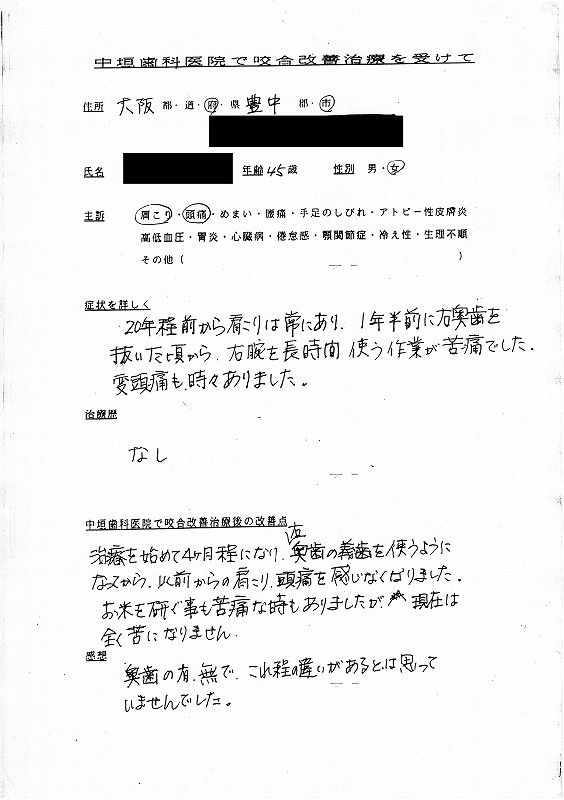 中垣歯科医院で咬合改善治療を受けて
住所 大阪 都・道・府・県 豊中 郡・市
氏名 年齢 45 歳 性別 男・女
主訴 肩こり・頭痛・めまい・腰痛・手足のしびれ・アトピー性皮膚炎
高低血圧・胃炎・心臓病・倦怠感・顎関節症・冷え性・生理不順
その他( )
症状を詳しく
20年程前から肩こりは常にあり、1年半前に右奥歯を
抜いた頃から、右腕を長時間使う作業が苦痛でした。
変頭痛も時々ありました。
治療歴
なし
中垣歯科医院で咬合改善治療後の改善点
治療を始めて4ヶ月程になり、右奥歯の義歯を使うように
なってから、以前からの肩こり、頭痛を感じなくなりました。
お米を研ぐ事も苦痛な時もありましたが 現在は
全く苦になりません。
感想
奥歯の有、無で、これ程の違いがあるとは思って
いませんでした。